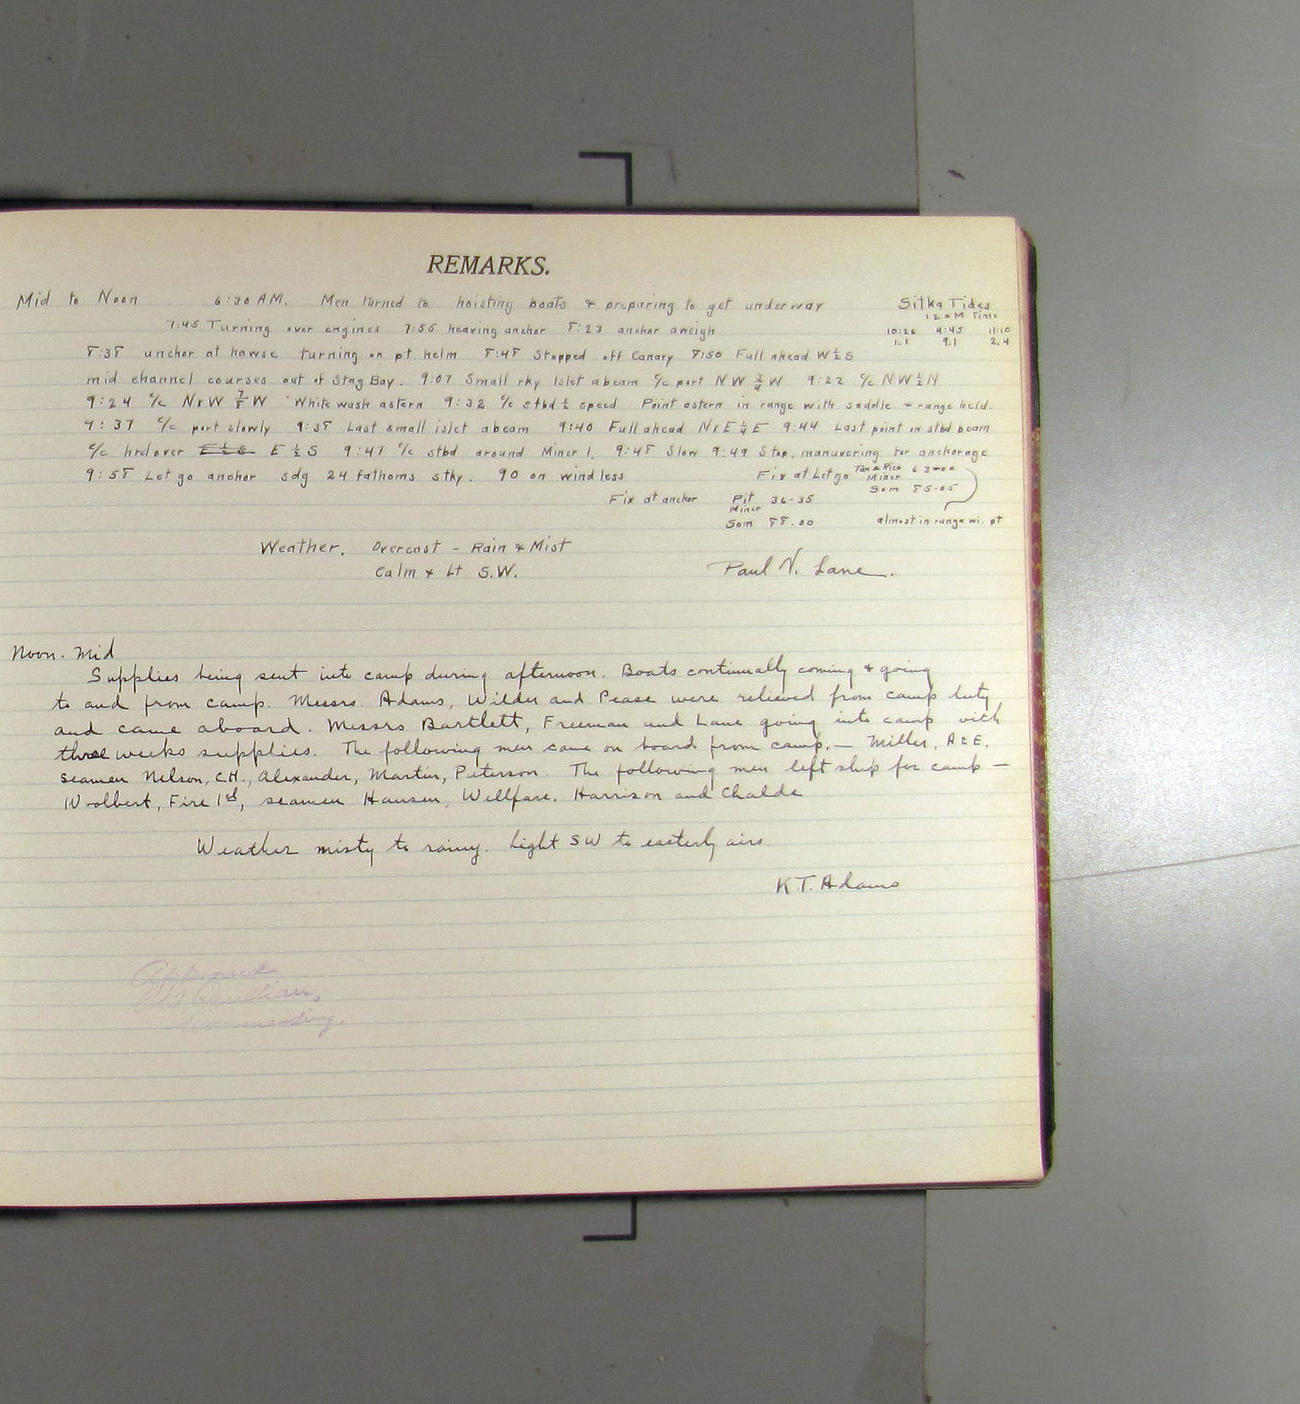 REMARKS.
Mid to Noon 6:30 AM. Men turned to hoisting boats & preparing to get underway
Sitka Tides
120 M Time
10:26 4:45 11:10
1.1 9.1 2.4
7:45 Turning over engines 7:55 heaving anchor 8:23 anchor aweigh
8:38 anchor at hawse turning on pt helm 8:48 Stopped off Canary 8:50 Full ahead W½S
mid channel courses out of Stag Bay. 9:07 Small rky Islet abeam c/c port NW ¾ W 9:22 c/c NW½N
9:24 c/c NxW ⅞ W White wash astern 9:32 c/c stbd ½ speed Point astern in range with saddle & range held.
9:37 c/c port slowly 9:38 Last small islet abeam 9:40 Full ahead NxE ¼ E 9:44 Last point on stbd beam
c/c hrd over E½S E ½ S 9:47 c/c stbd around Miner I. 9:48 Slow 9:49 Stop, manuvering for anchorage
9:58 Let go anchor sdg 24 fathoms stky. 90 on windless
Fix at Let go Miner
Som 85-05
Fix at anchor Pit 36-35
Miner
Som 88-00 almost in range wi. pt
Weather. Overcast - Rain & Mist
Calm & Lt S.W.
Paul V. Lane.
Noon. Mid
Supplies being sent into camp during afternoon. Boats continually coming & going
to and from camp. Messrs. Adams, Wilder and Pease were relieved from camp duty
and came aboard. Messrs Bartlett, Freeman and Lane going into camp with
three weeks supplies. The following men came on board from camp. — Miller, A&E.
seamen Nelson, C.H., Alexander, Martin, Peterson. The following men left ship for camp —
Woolbert, Fire 1st, seamen Hansen, Wellfare, Harrison and Chalde
Weather misty to rainy. Light SW to easterly airs.
K.T. Adams
Approved
Commanding.